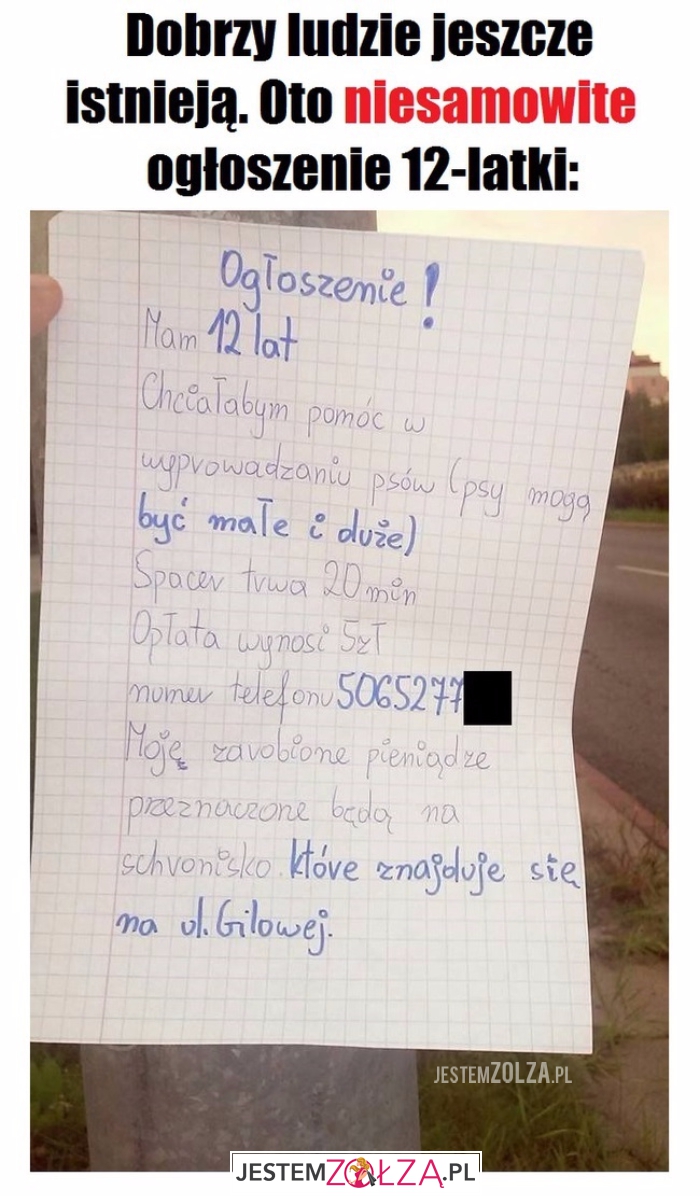 Dobrzy ludzie jeszcze
istnieją. Oto niesamowite
ogłoszenie 12-latki:
Ogłoszenie!
Mam 12 lat
Chciałabym pomóc w
wyprowadzaniu psów (psy mogą
być małe i duże)
Spacer trwa 20 min
Opłata wynosi 5zł
numer telefonu 5065277
Moję zarobione pieniądze
przeznaczone będą na
schronisko. które znajduje się
na ul. Gilowej.
JESTEMZOLZA.PL
JESTEMZOŁZA.PL